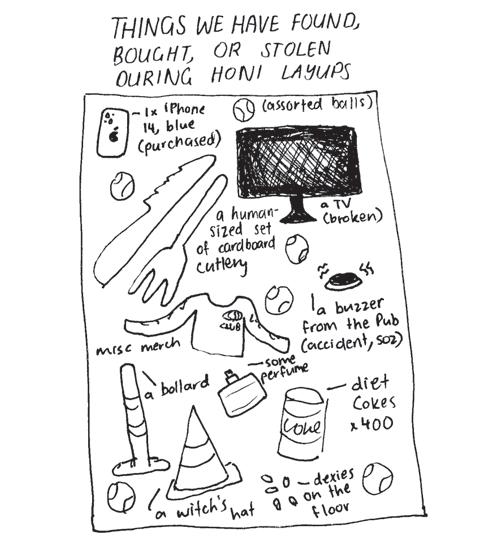 THINGS WE HAVE FOUND,
BOUGHT, OR STOLEN
DURING HONI LAYUPS
1x iPhone
14, blue
(purchased)
(assorted balls)
a TV
(broken)
a human-
sized set
of cardboard
cutlery
a buzzer
from the Pub
(accident, soz)
CLUB
misc merch
some
perfume
a bollard
diet
Cokes
x400
Coke
a witch's hat
dexies
on the
floor